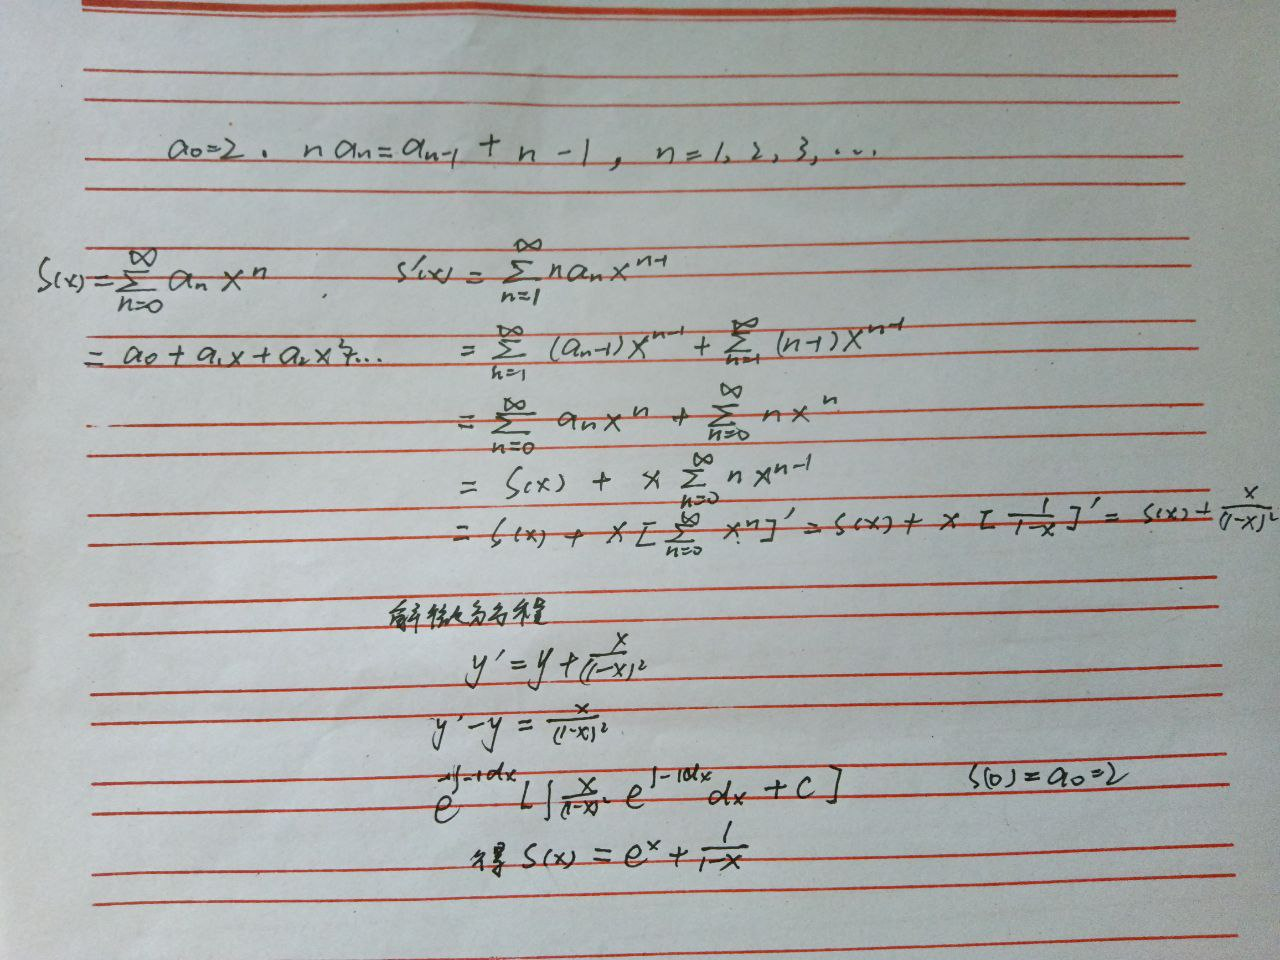 a₀=2. n aₙ=aₙ₋₁ + n -1, n=1, 2, 3, ...
S(x)=∑_{n=0}^{∞} aₙ xⁿ
= a₀ + a₁x + a₂x²+...
S'(x) = ∑_{n=1}^{∞} n aₙ x^{n-1}
= ∑_{n=1}^{∞} (aₙ-1) x^{n-1} + ∑_{n=1}^{∞} (n-1)x^{n-1}
= ∑_{n=0}^{∞} aₙ xⁿ + ∑_{n=0}^{∞} n xⁿ
= S(x) + x ∑_{n=0}^{∞} n x^{n-1}
= S(x) + x [∑_{n=0}^{∞} xⁿ]' = S(x) + x [1/(1-x)]' = S(x) + x/(1-x)²
解微分方程
y' = y + x/(1-x)²
y' - y = x/(1-x)²
e^{-∫-1dx} [∫ x/(1-x)² e^{∫-1dx} dx + C]
S(0) = a₀=2
得 S(x) = eˣ + 1/(1-x)